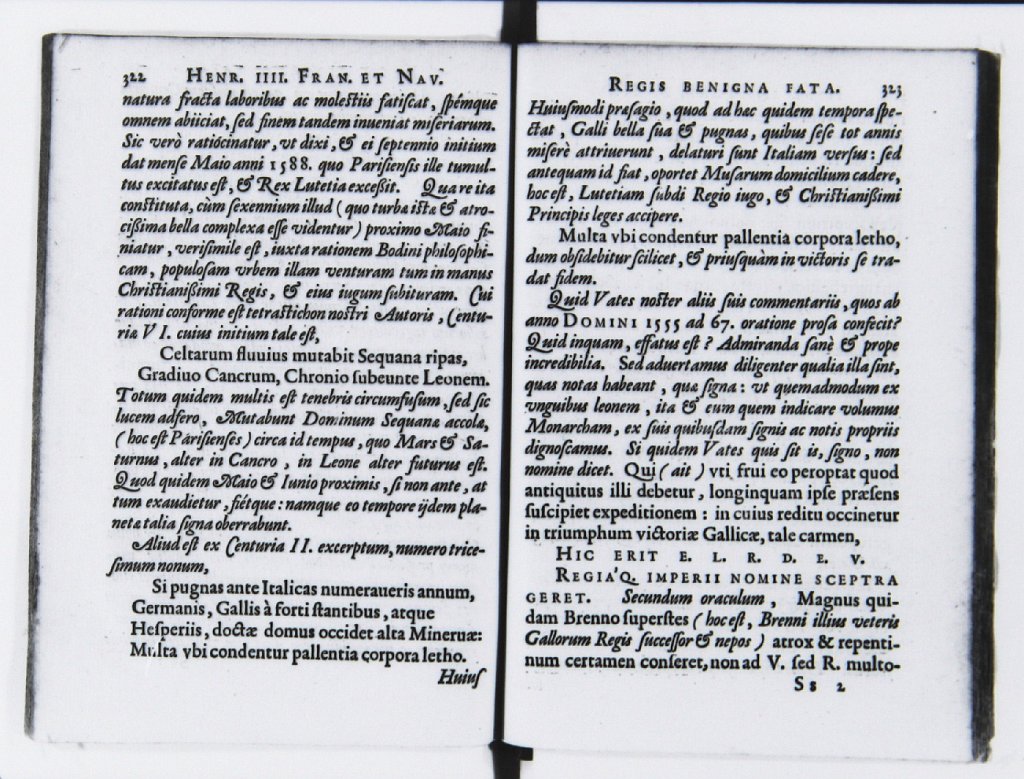 322 HENR. IIII. FRAN. ET NAV.
natura fracta laboribus ac molestiis fatiscat, spémque
omnem abiiciat, sed finem tandem inueniat miseriarum.
Sic verò ratiocinatur, vt dixi, & ei septennio initium
dat mense Maio anni 1588. quo Parisiensis ille tumul-
tus excitatus est, & Rex Lutetia excessit. Quare ita
constituta, cùm sexennium illud (quo turba ista & atro-
cissima bella complexa esse videntur) proximo Maio fi-
niatur, verisimile est, iuxta rationem Bodini philosophi-
cam, populosam vrbem illam venturam tum in manus
Christianissimi Regis, & eius iugum subituram. Cui
rationi conforme est tetrastichon nostri Autoris, Centu-
ria VI. cuius initium tale est,
Celtarum fluuius mutabit Sequana ripas,
Gradiuo Cancrum, Chronio subeunte Leonem.
Totum quidem multis est tenebris circumfusum, sed sic
lucem adfero, Mutabunt Dominum Sequanæ accolæ,
(hoc est Parisienses) circa id tempus, quo Mars & Sa-
turnus, alter in Cancro, in Leone alter futurus est.
Quod quidem Maio & Iunio proximis, si non ante, at
tum exaudietur, fiétque: namque eo tempore ijdem pla-
netæ talia signa oberrabunt.
Aliud est ex Centuria II. excerptum, numero trice-
simum nonum,
Si pugnas ante Italicas numeraueris annum,
Germanis, Gallis à forti stantibus, atque
Hesperiis, doctæ domus occidet alta Mineruæ:
Multa vbi condentur pallentia corpora letho.
Huius
REGIS BENIGNA FATA. 323
Huiusmodi præsagio, quod ad hac quidem tempora spe-
ctat, Galli bella sua & pugnas, quibus sese tot annis
miserè attriuerunt, delaturi sunt Italiam versus: sed
antequam id fiat, oportet Musarum domicilium cadere,
hoc est, Lutetiam subdi Regio iugo, & Christianissimi
Principis leges accipere.
Multa vbi condentur pallentia corpora letho,
dum obsidebitur scilicet, & priusquàm in victoris se tra-
dat fidem.
Quid Vates noster aliis suis commentariis, quos ab
anno DOMINI 1555 ad 67. oratione prosa confecit?
Quid inquam, effatus est? Admiranda sanè & prope
incredibilia. Sed aduertamus diligenter qualia illa sint,
quas notas habeant, quæ signa: vt quemadmodum ex
vnguibus leonem, ita & eum quem indicare volumus
Monarcham, ex suis quibusdam signis ac notis propriis
dignoscamus. Si quidem Vates quis sit is, signo, non
nomine dicet. Qui (ait) vti frui eo peroptat quod
antiquitus illi debetur, longinquam ipse præsens
suscipiet expeditionem: in cuius reditu occinetur
in triumphum victoriæ Gallicæ, tale carmen,
HIC ERIT E. L. R. D. E. V.
REGIA'Q. IMPERII NOMINE SCEPTRA
GERET. Secundum oraculum, Magnus qui-
dam Brenno superstes (hoc est, Brenni illius veteris
Gallorum Regis successor & nepos) atrox & repenti-
num certamen conseret, non ad V. sed R. multo-
Ss 2